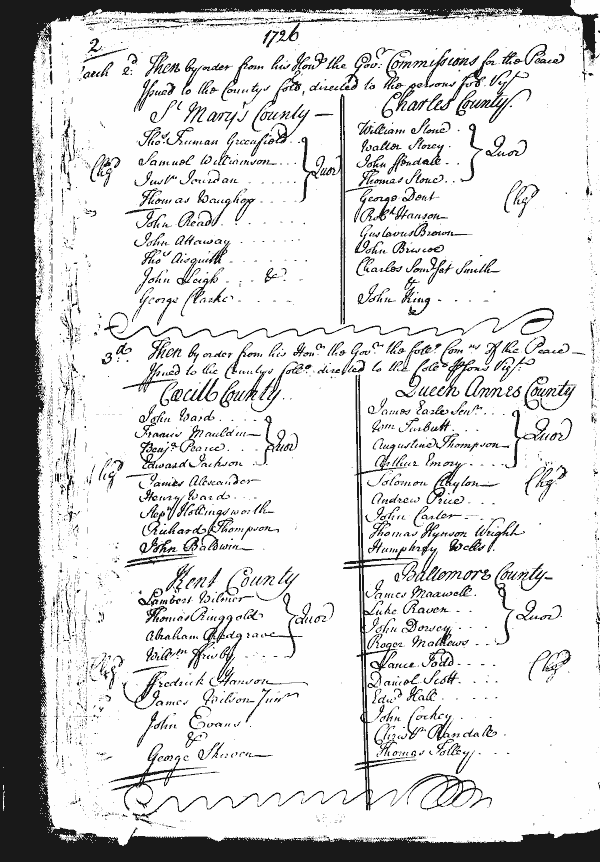 2
1726
March 2d. Then by order from his Honr. the Govr. Commissions for the Peace
Issued to the Countys foll, directed to the persons foll. Vizt
St Mary's County
Thos. Truman Greenfield
Samuel Williamson
Justn Jourdan
Thomas Waughop
Quor
Chgd
John Read
John Attaway
Thos. Aisquith
John Leigh &
George Clarke
Charles County
William Stone
Walter Storey
John Fendale
Thomas Stone
Quor
George Dent
Robt Hanson
Gustavus Brown
John Briscoe
Charles Somrset Smith
&
John King
&
Chgd
3d. Then by order from his Honr. the Govr. the follo Comns of the Peace
Issued to the Countys follo. directed to the follo psons Vizt.
Cæcill County
John Ward
Francis Mauldin
Benjn Pearce
Edward Jackson
Quor
Chgd
James Alexander
Henry Ward
Stepn Hollingsworth
Richard Thompson
John Baldwin
Queen Annes County
James Earle Senr.
Wm Turbutt
Augustine Thompson
Arthur Emory
Quor
Solomon Clayton
Andrew Price
John Carter
Thomas Hynson Wright
Humphry Wells
Chgd
Kent County
Lambert Wilmer
Thomas Ringgold
Abraham Redgrave
Willm Frisby
Quor
Chgd
Fredrick Hanson
James Wilson Junr
John Evans
&
George Skirven
Baltemore County
James Maxwell
Luke Raven
John Dorsey
Roger Mathews
Quor
Lance Todd
Daniel Scott
Edwd Hall
John Cockey
Christr Randall
Thomas Tolley
Chgd